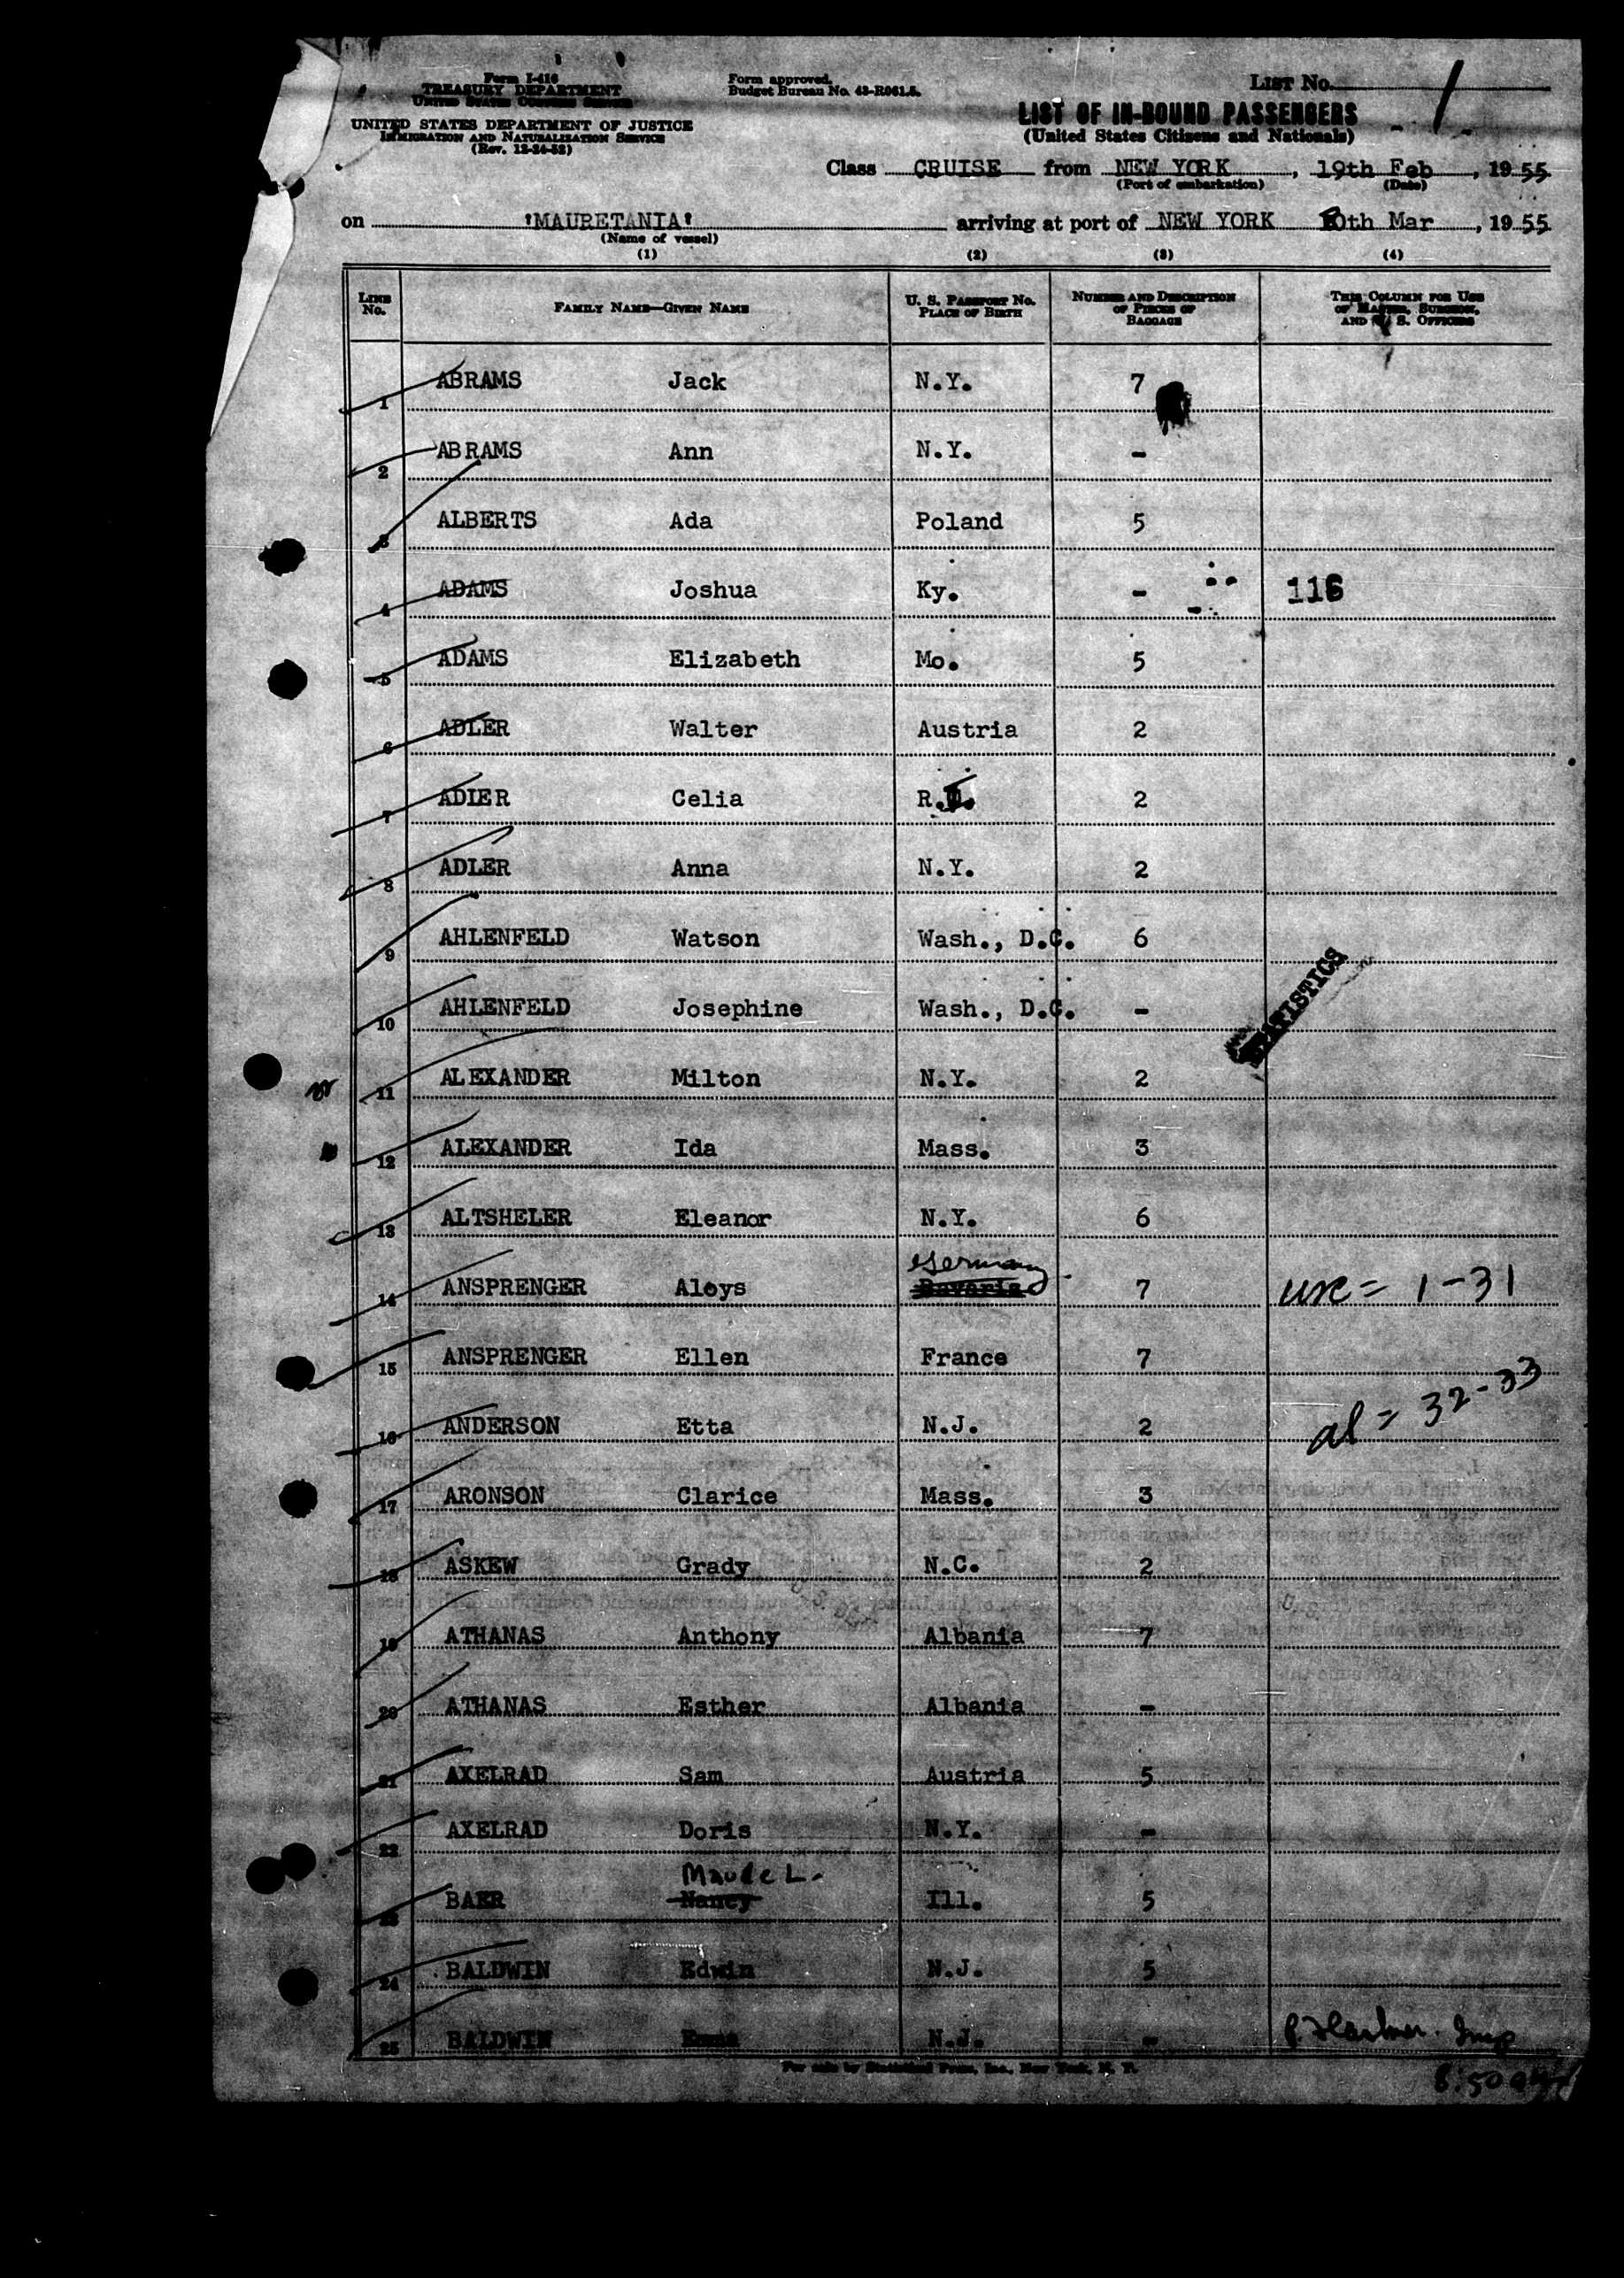 Form I-416
TREASURY DEPARTMENT
UNITED STATES CUSTOMS SERVICE
UNITED STATES DEPARTMENT OF JUSTICE
IMMIGRATION AND NATURALIZATION SERVICE
(Rev. 12-24-52)
Form approved.
Budget Bureau No. 43-R061.5.
LIST No. 1
LIST OF IN-BOUND PASSENGERS
(United States Citizens and Nationals)
Class CRUISE from NEW YORK, 19th Feb, 1955
(Port of embarkation) (Date)
on 'MAURETANIA' arriving at port of NEW YORK 0th Mar, 1955
(Name of vessel)
(1) (2) (3) (4)
LINE No. FAMILY NAME—GIVEN NAME U. S. PASSPORT No. PLACE OF BIRTH NUMBER AND DESCRIPTION OF PIECES OF BAGGAGE THIS COLUMN FOR USE OF MASTER, SURGEON, AND U. S. OFFICERS
1 ABRAMS Jack N.Y. 7
2 ABRAMS Ann N.Y. -
3 ALBERTS Ada Poland 5
4 ADAMS Joshua Ky. - 116
5 ADAMS Elizabeth Mo. 5
6 ADLER Walter Austria 2
7 ADIER Celia R.I. 2
8 ADLER Anna N.Y. 2
9 AHLENFELD Watson Wash., D.C. 6
10 AHLENFELD Josephine Wash., D.C. -
STATISTICS
11 ALEXANDER Milton N.Y. 2
12 ALEXANDER Ida Mass. 3
13 ALTSHELER Eleanor N.Y. 6
Germany
14 ANSPRENGER Aloys Bavaria 7 usc = 1-31
15 ANSPRENGER Ellen France 7
16 ANDERSON Etta N.J. 2 al = 32-33
17 ARONSON Clarice Mass. 3
18 ASKEW Grady N.C. 2
19 ATHANAS Anthony Albania 7
20 ATHANAS Esther Albania -
21 AXELRAD Sam Austria 5
22 AXELRAD Doris N.Y. -
Maude L.
23 BAER Nancy Ill. 5
24 BALDWIN Edwin N.J. 5
25 BALDWIN Emma N.J. -
For sale by Statistical Press, Inc., New York, N. Y.
8:50